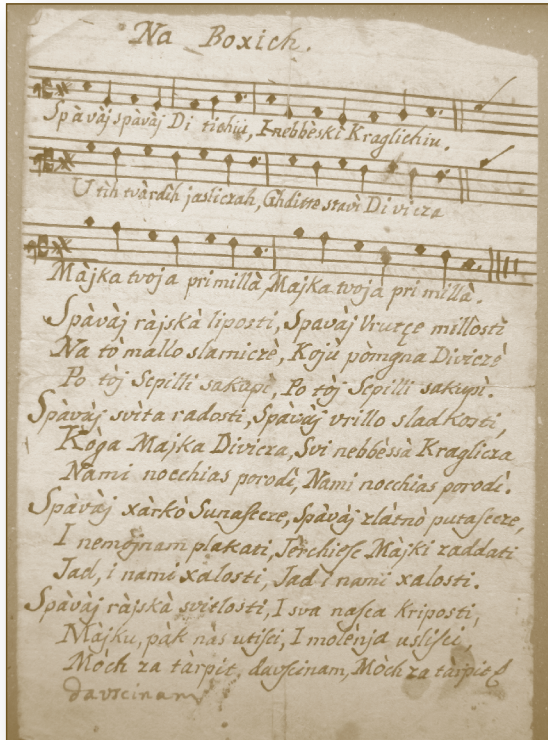 Na Boxich.
Spàvàj spàvàj Di tichiu, I nebbèski Kraglichiu.
U tih tvàrdih jasliczah, Ghditte stavì Divicza
Màjka tvoja primillà, Majka tvoja primillà.
Spàvàj ràjskà liposti, Spavàj Vrutçe millosti
Na tò mallo slamiczè, Kojù pòmgna Diviczè
Po tòj Scpilli sakupì, Po tòj Scpilli sakupì.
Spàvàj svìta radosti, Spàvàj vrillo sladkosti,
Kòga Majka Divicza, Svi nebbèssà Kraglicza
Nami nocchias porodì, Nami nocchias porodì.
Spàvàj xàrkò Sunaſcce, Spàvàj zlàtnò putaſcce,
I nemòjnam plakati, Jèrchieſc Màjki zaddati
Jad, i nami xalosti, Jad i nami xalosti.
Spàvàj ràjskà svitlosti, I sva naſca kriposti,
Màjku, pàk nàs utiſci, I molènja usliſci,
Mòch za tàrpit, davſcinam, Mòch za tàrpit
davscinam